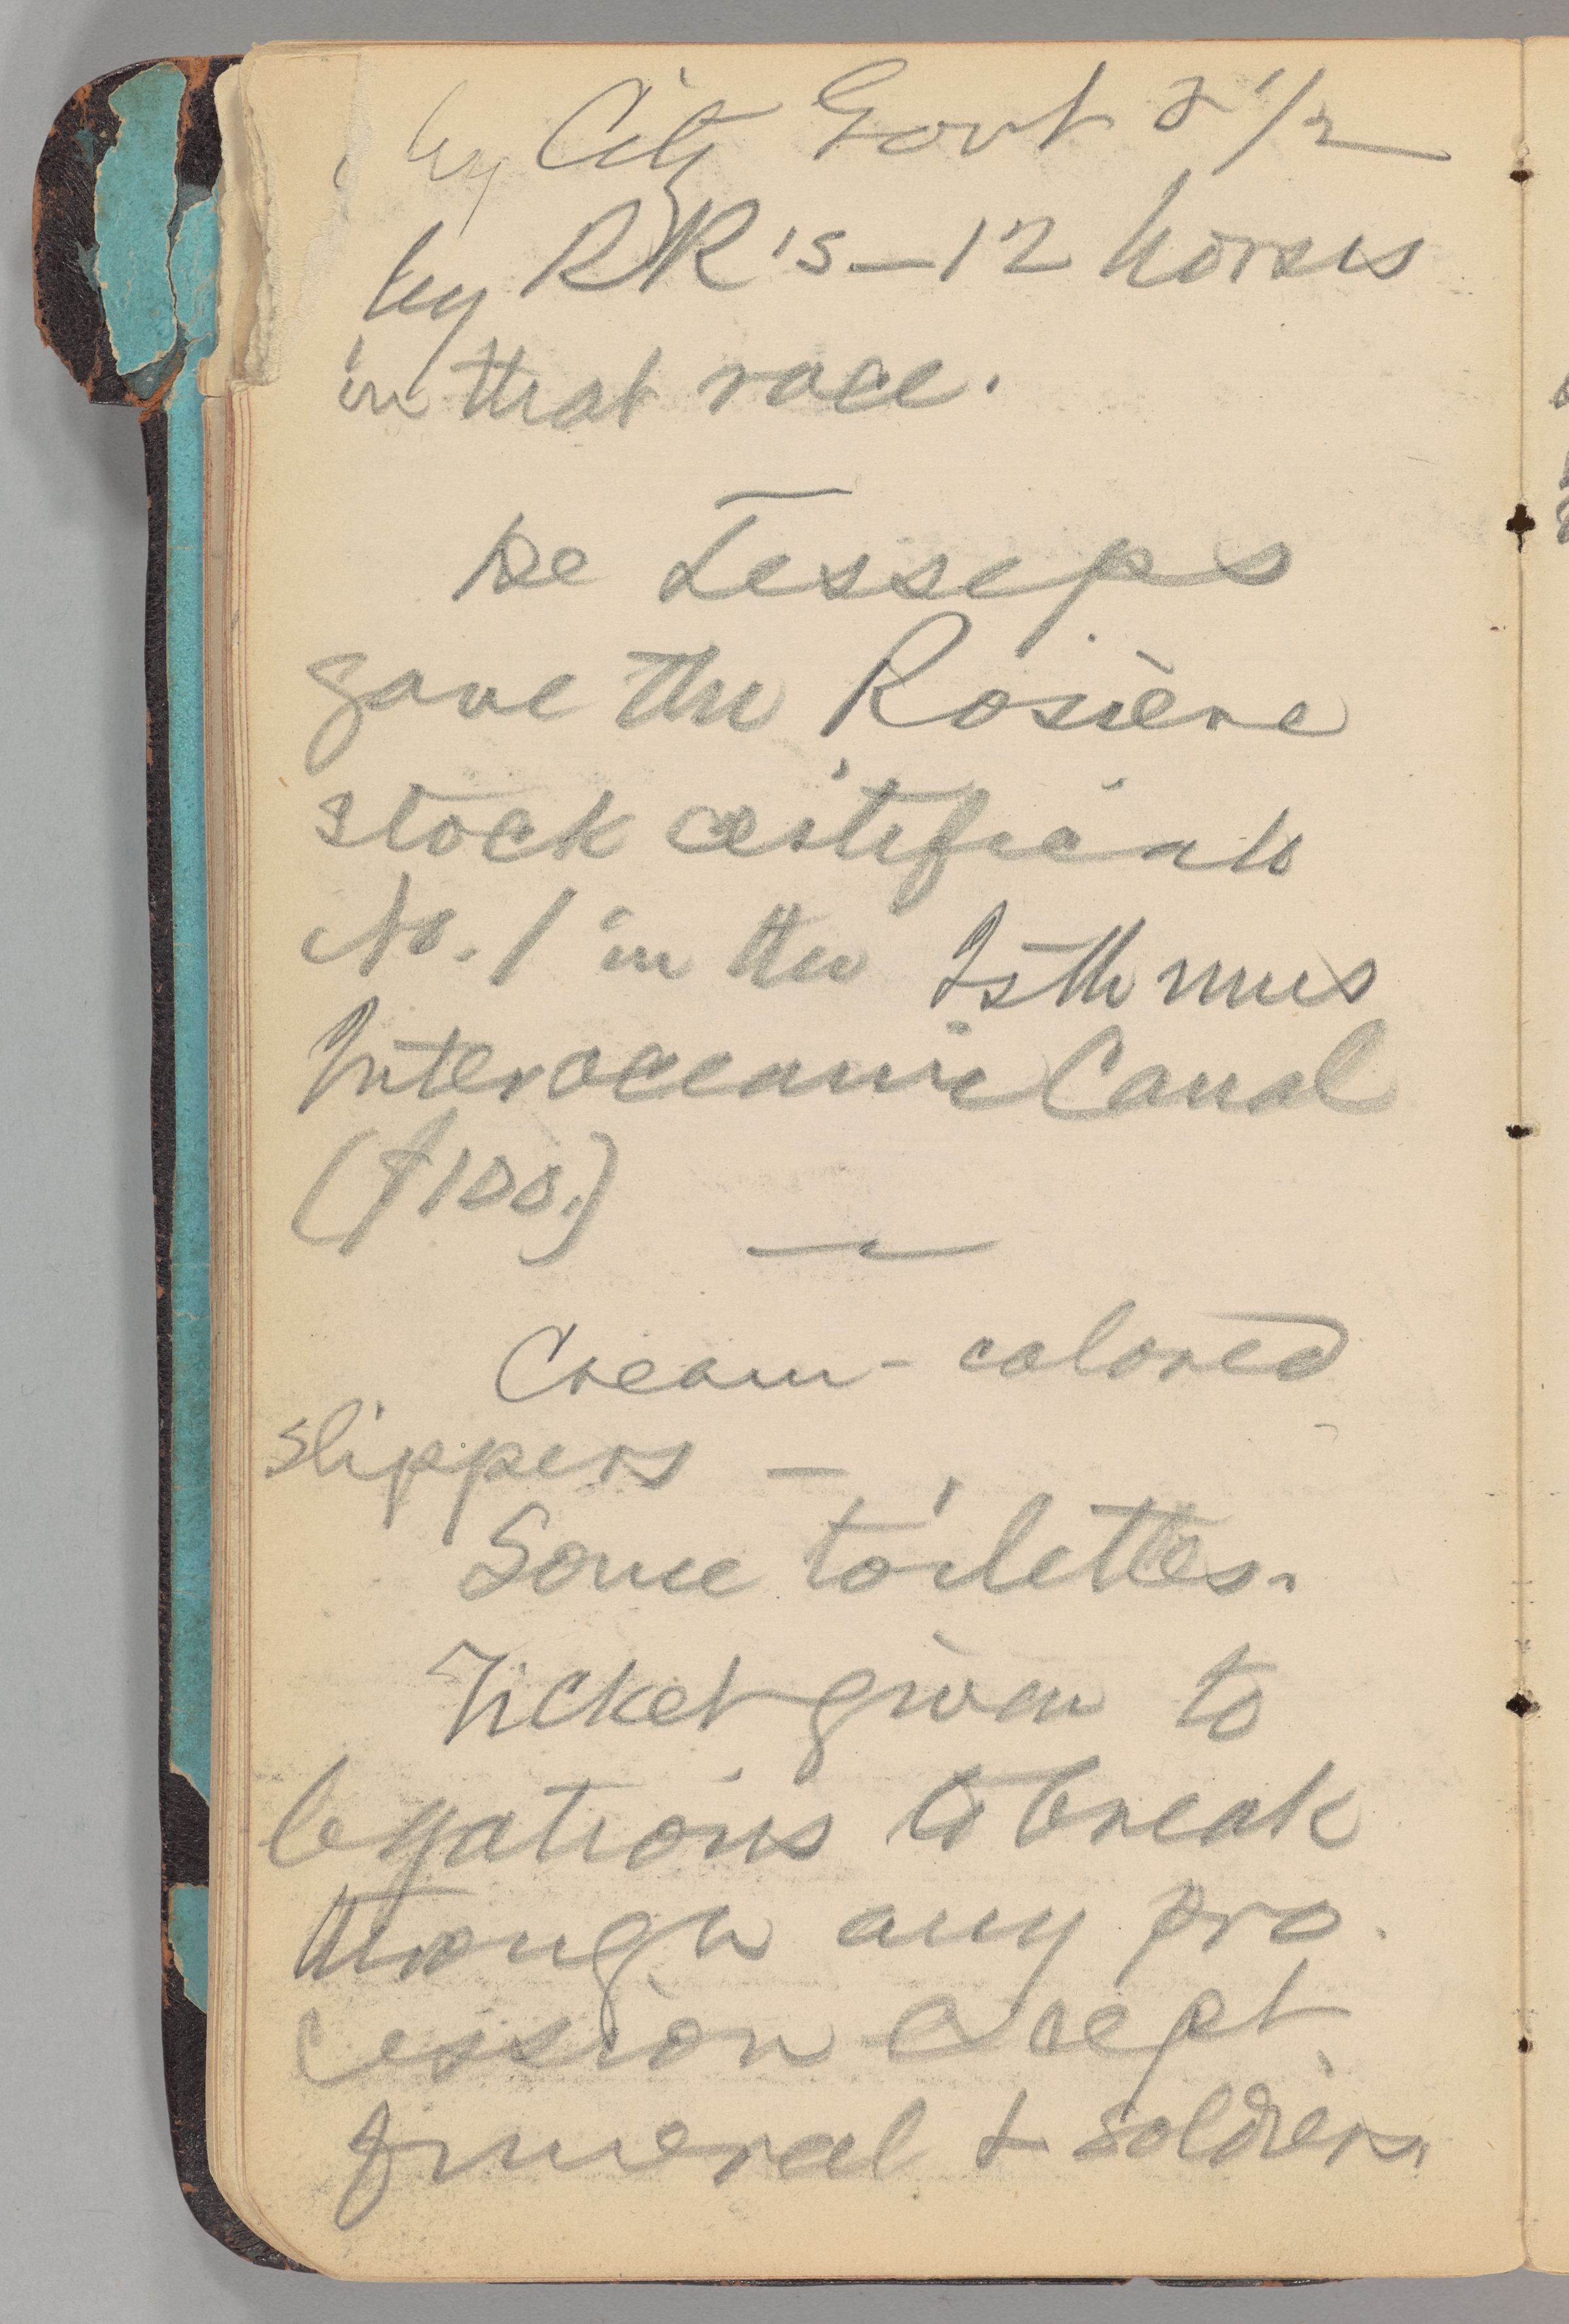 by City Govt & 1/2
by RR's — 12 horses
in that race.
De Lesseps
gave the Rosière
stock certificate
No. 1 in the Isthmus
Interoceanic Canal
($100.)
Cream-colored
slippers —
Some toilettes.
Ticket given to
legations to break
through any pro-
cession except
funeral & soldiers.